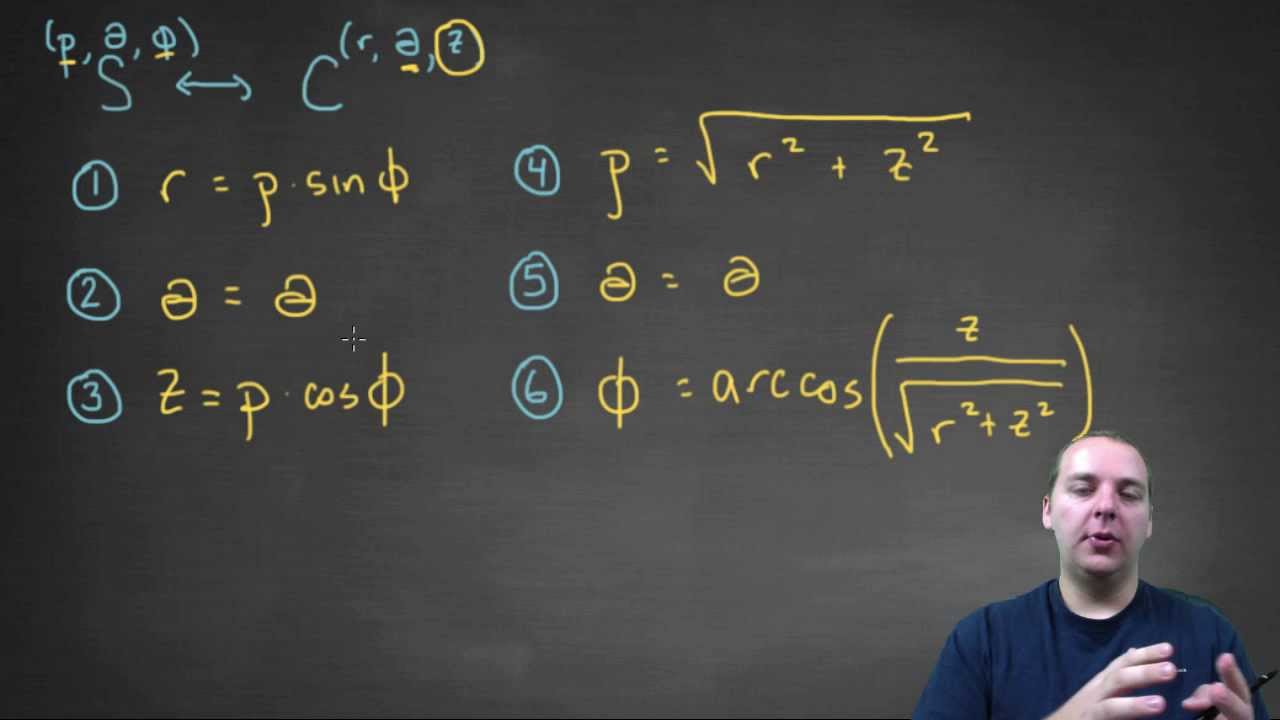 (ρ, θ, φ) (r, θ, z)
S ↔ C
① r = ρ · sin φ
② θ = θ
③ z = ρ · cos φ
④ ρ = √(r² + z²)
⑤ θ = θ
⑥ φ = arccos(z / √(r² + z²))